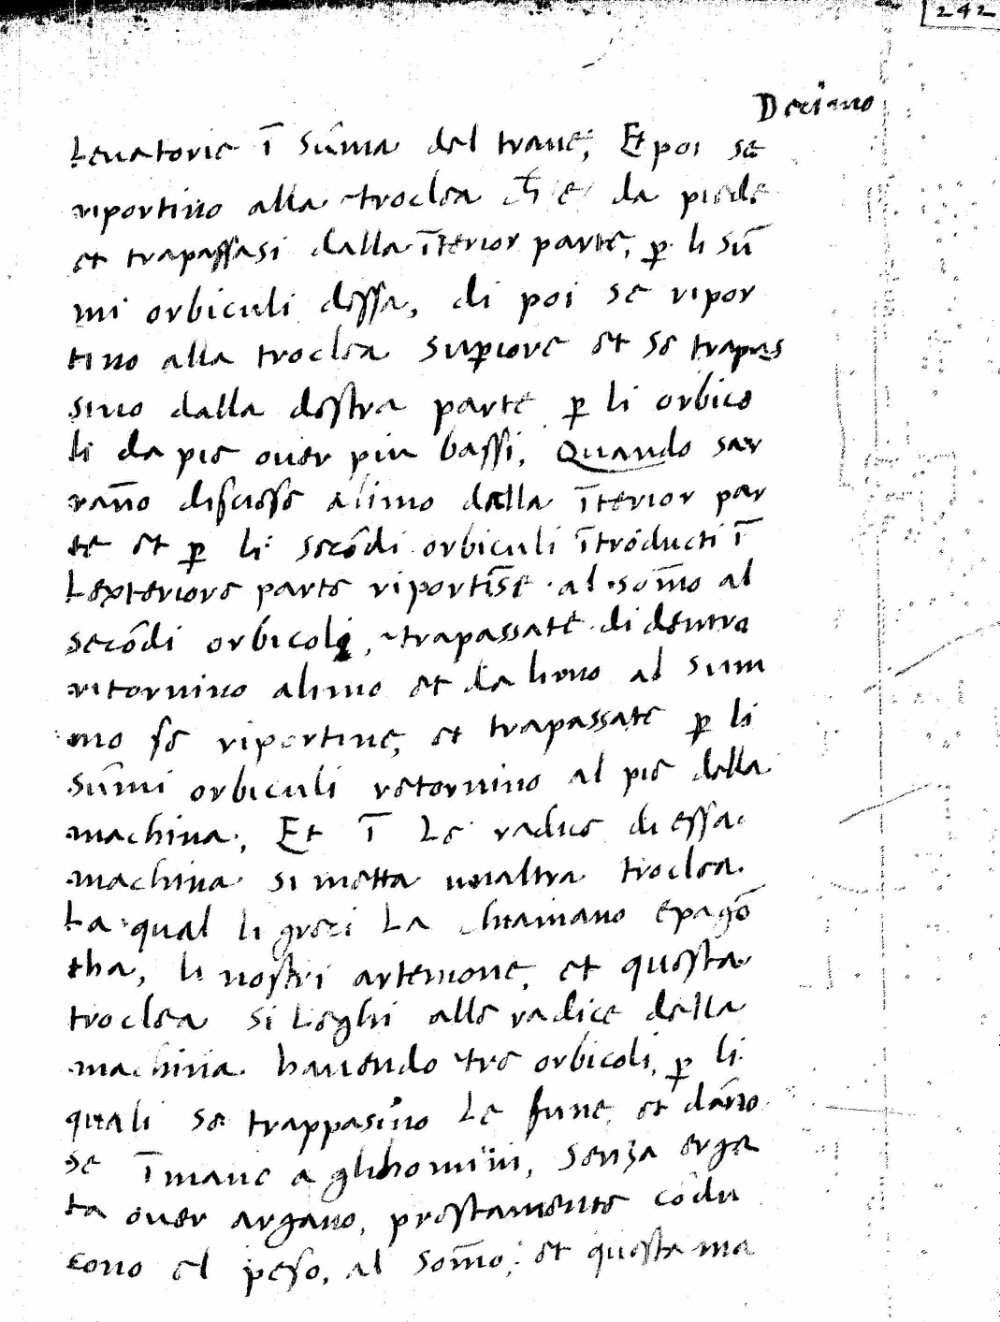 242
Decimo
Leuatorie ī Sūma del traue; Et poi se
riportino alla troclea ch̄ e da piede
et trapassasi dalla īterior parte, ꝑ li sū
mi orbiculi dessa, di poi se ripor
tino alla troclea Suꝑiore et se trapas
sino dalla destra parte ꝑ li orbico
li da pie ouer piu bassi. Quando sar
rāno discesse alimo della īterior par
te et ꝑ li secōdi orbiculi ītroducti ī
Lexteriore parte riportīse al somō al
secōdi orbicoli, trapassate di dentro
ritornino alimo et da limo al sum
mo se riportine, et trapassate ꝑ li
sūmi orbiculi retornino al pie della
machina. Et ī Le radice di essa
machina si metta unaltra troclea.
La qual li greci La chiamano epagō
tha, li nostri artemone, et questa
troclea si Leghi alle radice della
machina hauendo tre orbicoli, ꝑ li
quali se trappasino Le fune et dāno
se ī mane a glihomini, senza erga
ta ouer argano, prestamente cōdu
cono el peso, al somō; et questa ma